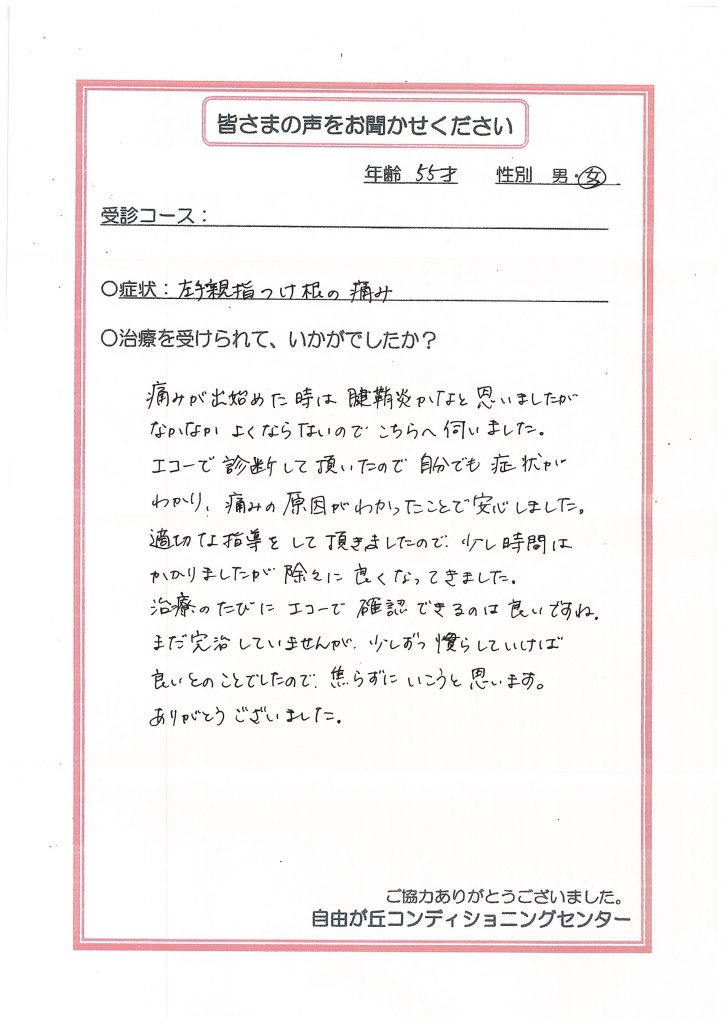 皆さまの声をお聞かせください
年齢 55才 性別 男・女
受診コース：
〇症状：左手親指つけ根の痛み
〇治療を受けられて、いかがでしたか？
痛みが出始めた時は腱鞘炎かなと思いましたが
なかなかよくならないのでこちらへ伺いました。
エコーで診断して頂いたので自分でも症状が
わかり、痛みの原因がわかったことで安心しました。
適切な指導をして頂きましたので、少し時間は
かかりましたが除々に良くなってきました。
治療のたびにエコーで確認できるのは良いですね。
まだ完治していませんが、少しずつ慣らしていけば
良いとのことでしたので、焦らずにいこうと思います。
ありがとうございました。
ご協力ありがとうございました。
自由が丘コンディショニングセンター